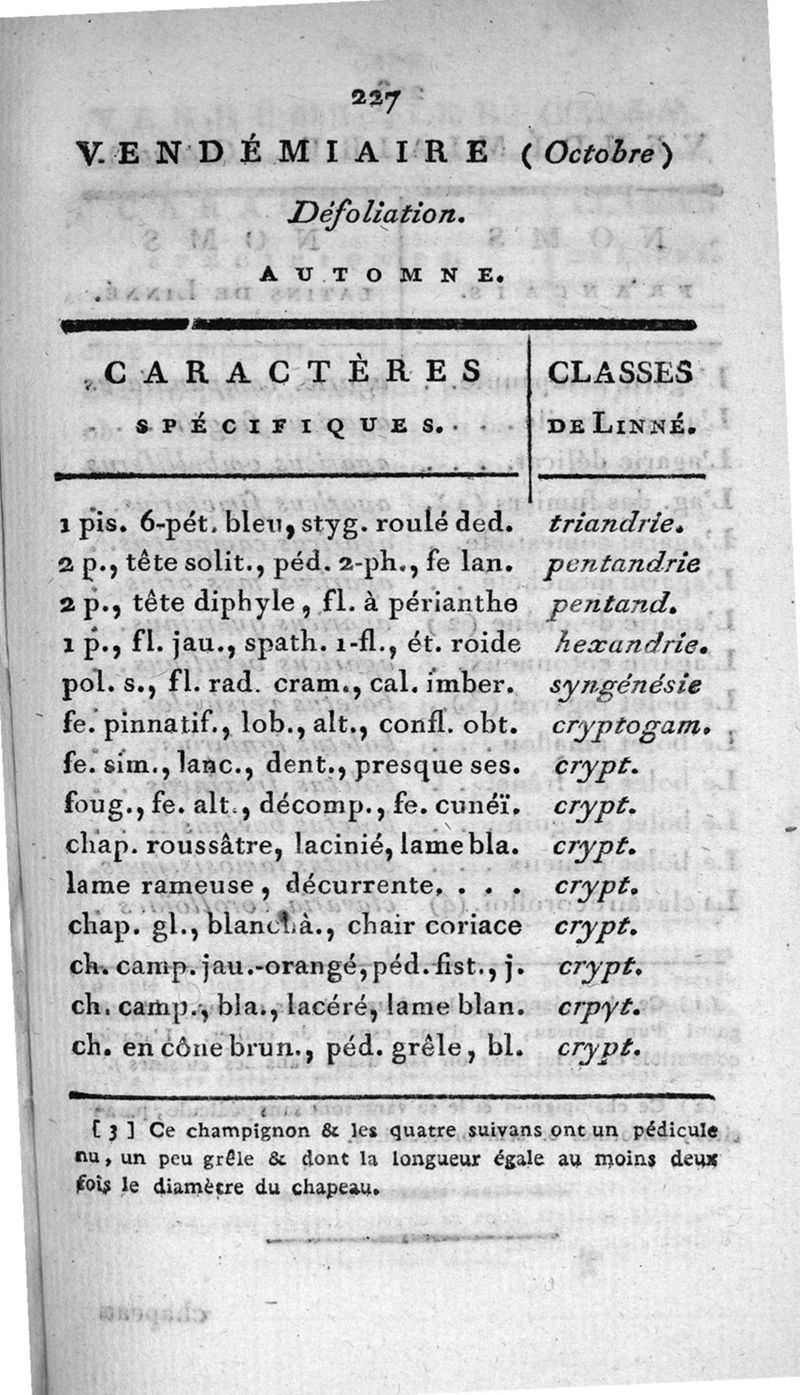 227
VENDÉMIAIRE (Octobre)
Défoliation.
AUTOMNE.
CARACTÈRES
SPÉCIFIQUES.
CLASSES
DE LINNÉ.
1 pis. 6-pét. bleu, styg. roulé ded. triandrie.
2 p., tête solit., péd. 2-ph., fe lan. pentandrie
2 p., tête diphyle, fl. à périanthe pentand.
1 p., fl. jau., spath. 1-fl., ét. roide hexandrie.
pol. s., fl. rad. cram., cal. imber. syngénésie
fe. pinnatif., lob., alt., confl. obt. cryptogam.
fe. sim., lanc., dent., presque ses. crypt.
foug., fe. alt., décomp., fe. cunéï. crypt.
chap. roussâtre, lacinié, lame bla. crypt.
lame rameuse, décurrente. . . . crypt.
chap. gl., blanchâ., chair coriace crypt.
ch. camp. jau.-orangé, péd. fist., j. crypt.
ch. camp., bla., lacéré, lame blan. crpyt.
ch. en cône brun., péd. grêle, bl. crypt.
[ 3 ] Ce champignon & les quatre suivans ont un pédicule
nu, un peu grêle & dont la longueur égale au moins deux
fois le diamètre du chapeau.